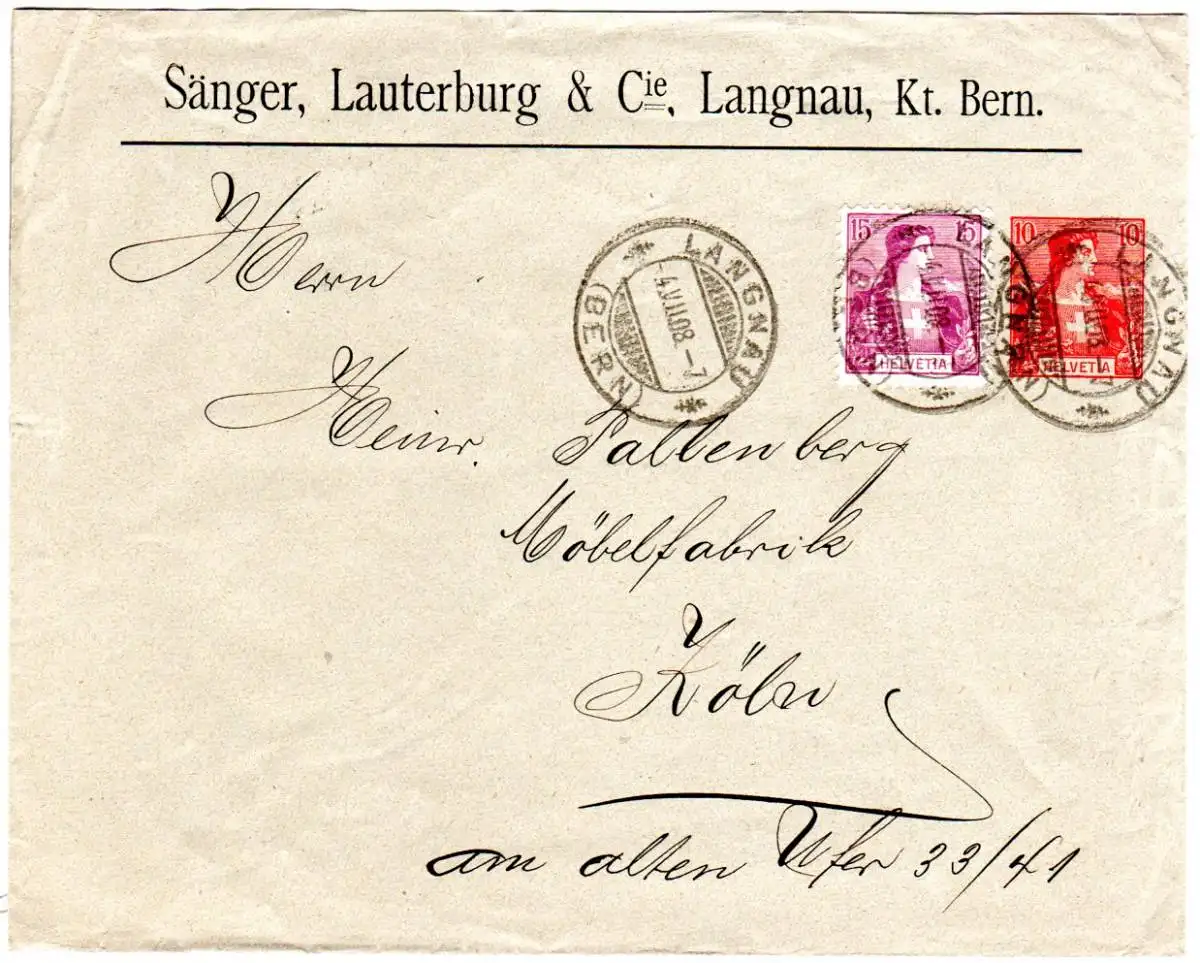 Sänger, Lauterburg & Cie, Langnau, Kt. Bern.
Herrn
LANGNAU
4.VII.08.-7
(BERN)
15 15
HELVETIA
10 10
HELVETIA
Heinr. Pallenberg
Möbelfabrik
Köln
am alten Ufer 33/41